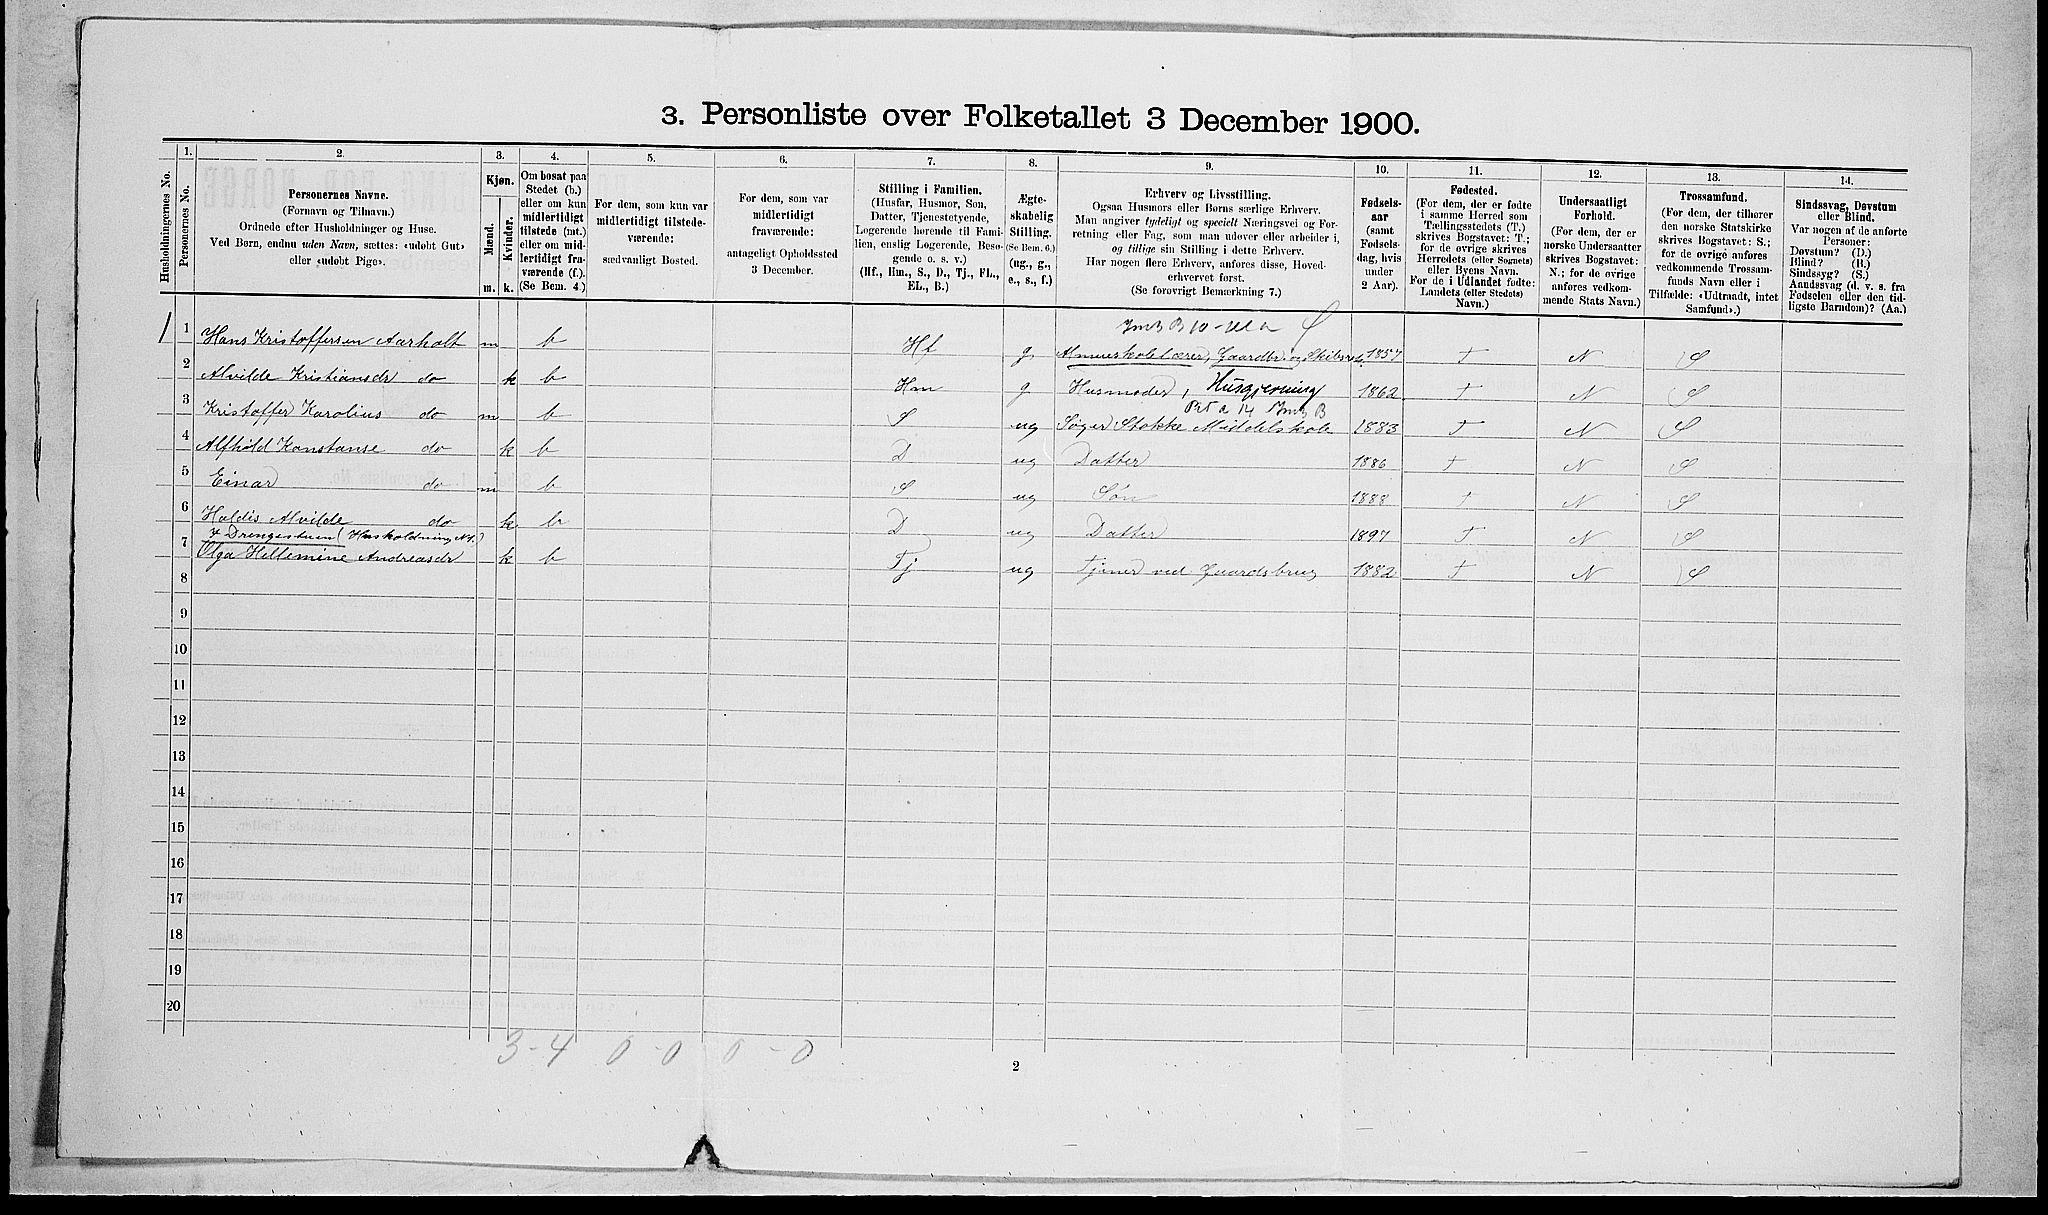 3. Personliste over Folketallet 3 December 1900.
Husholdningernes No.
1. Personernes No.
2. Personernes Navne. (Fornavn og Tilnavn.) Ordnede efter Husholdninger og Huse. Ved Børn, endnu uden Navn, sættes: «udøbt Gut» eller «udøbt Pige».
3. Kjøn. Mænd. m. Kvinder. k.
4. Om bosat paa Stedet (b.) eller om kun midlertidigt tilstede (mt.) eller om midlertidigt fraværende (f.). (Se Bem. 4.)
5. For dem, som kun var midlertidigt tilstedeværende: sædvanligt Bosted.
6. For dem, som var midlertidigt fraværende: antageligt Opholdssted 3 December.
7. Stilling i Familien. (Husfar, Husmor, Søn, Datter, Tjenestetyende, Logerende hørende til Familien, enslig Logerende, Besøgende o. s. v.) (Hf., Hm., S., D., Tj., FL., EL., B.)
8. Ægteskabelig Stilling. (Se Bem. 6.) (ug., g., e., s., f.)
9. Erhverv og Livsstilling. Ogsaa Husmors eller Børns særlige Erhverv. Man angiver tydeligt og specielt Næringsvei og Forretning eller Fag, som man udøver eller arbeider i, og tillige sin Stilling i dette Erhverv. Har nogen flere Erhverv, anføres disse, Hovederhvervet først. (Se forøvrigt Bemærkning 7.)
10. Fødselsaar (samt Fødselsdag, hvis under 2 Aar).
11. Fødested. (For dem, der er fødte i samme Herred som Tællingsstedets (T.) skrives Bogstavet: T.; for de øvrige skrives Herredets (eller Sognets) eller Byens Navn. For de i Udlandet fødte: Landets (eller Stedets) Navn.)
12. Undersaatligt Forhold. (For dem, der er norske Undersaatter skrives Bogstavet: N.; for de øvrige anføres vedkommende Stats Navn.)
13. Trossamfund. (For dem, der tilhører den norske Statskirke skrives Bogstavet: S.; for de øvrige anføres vedkommende Trossamfunds Navn eller i Tilfælde: «Udtraadt, intet Samfund».)
14. Sindssvag, Døvstum eller Blind. Var nogen af de anførte Personer: Døvstum? (D.) Blind? (B.) Sindssyg? (S.) Aandssvag (d. v. s. fra Fødselen eller den tidligste Barndom)? (Aa.)
1 1 Hans Kristoffersen Aarholt m b Hf g Almueskolelærer, Gaardbr. og 1857 T N S
2 Alvilde Kristiansdr do k b Hm g Husmoder, Husgjerning 1862 T N S
3 Kristoffer Karolius do m b S ug Søger Stokke Middelskole 1883 T N S
4 Alfhold Konstanse do k b D ug Datter 1886 T N S
5 Einar do m b S ug Søn 1888 T N S
6 Haldis Alvilde do k b D ug Datter 1897 T N S
I Drengestuen (Husholdning N 1.)
7 Olga Hellemine Andreasdr k b Tj ug Tjener ved Gaardsbrug 1882 T N S
8
9
10
11
12
13
14
15
16
17
18
19
20
3-4 0-0 0-0
2